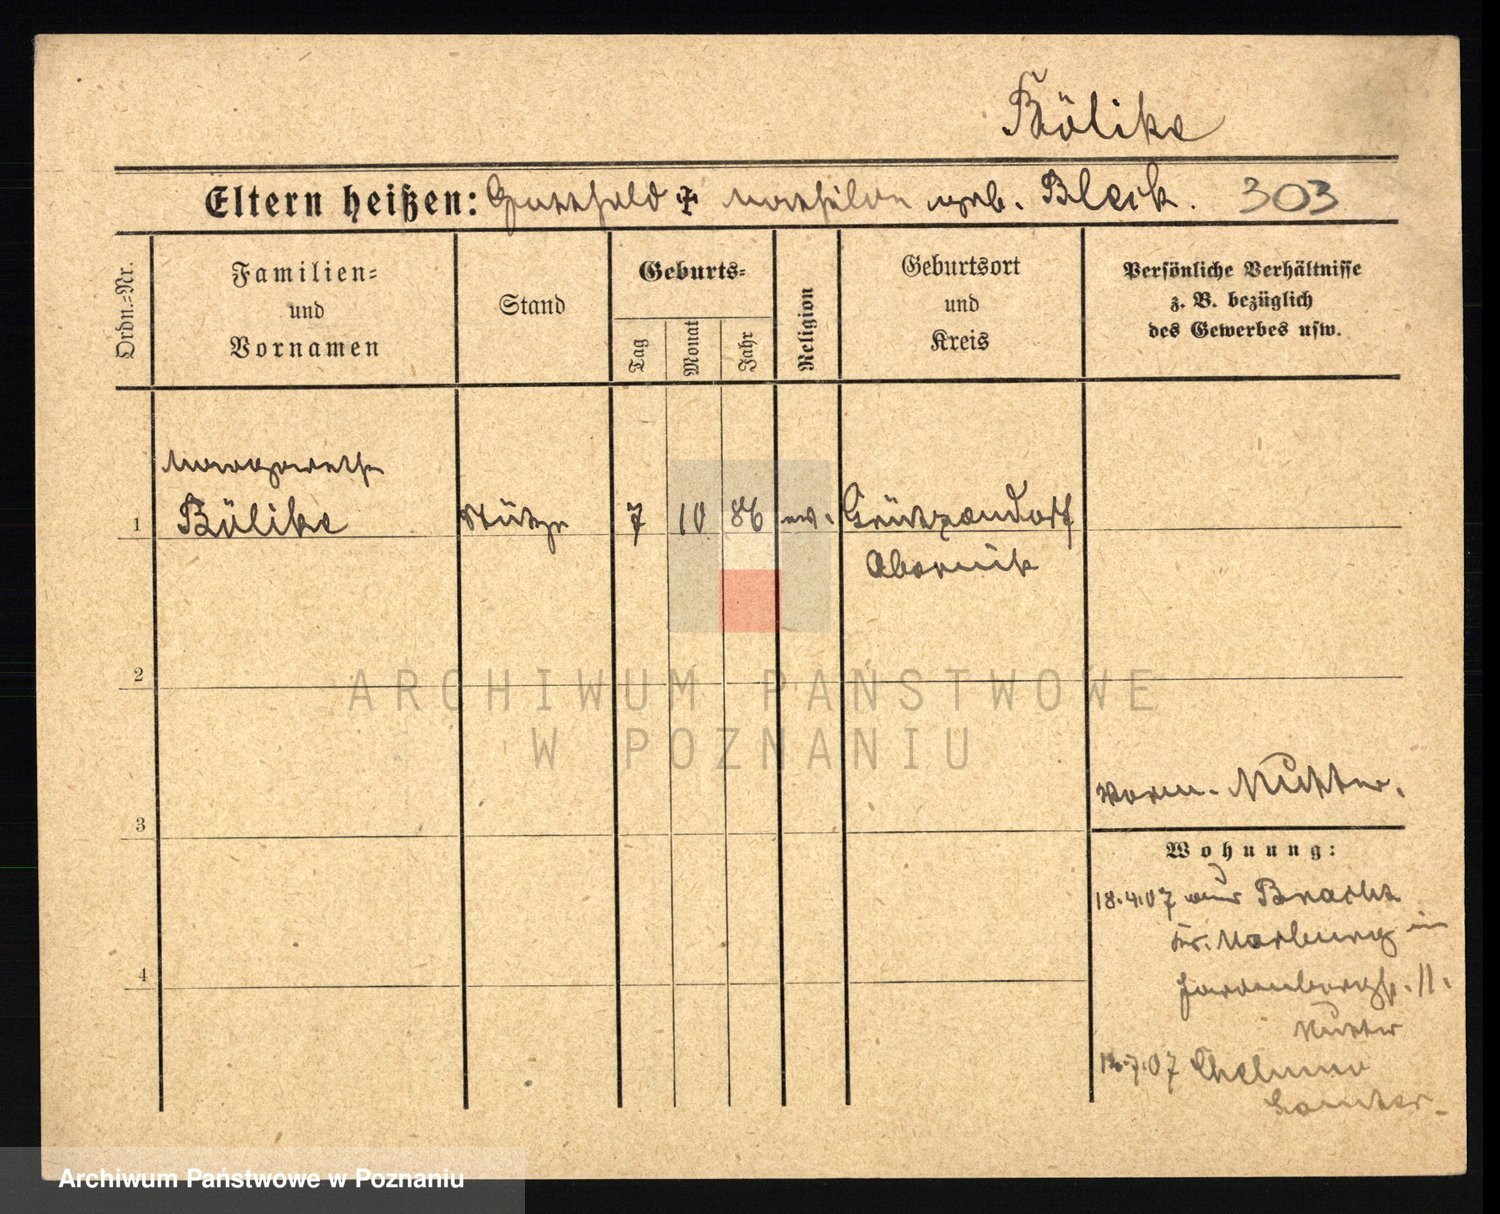 Bölike
Eltern heißen: Gottfried † Mathilde geb. Bleik. 303
Ordn.=Nr.
Familien=
und
Vornamen
Stand
Geburts=
Tag
Monat
Jahr
Religion
Geburtsort
und
Kreis
Persönliche Verhältnisse
z. B. bezüglich
des Gewerbes usw.
Margarethe
1 Bölike Stütze 7 10 86 ev. Grützendorf
Obornik
2
ARCHIWUM PAŃSTWOWE
W POZNANIU
3
Vorm. Mutter.
Wohnung:
18.4.07 aus Bracht
Kr. Marburg in
11.
Mutter
4
7.07 Chelmno
Samter
Archiwum Państwowe w Poznaniu